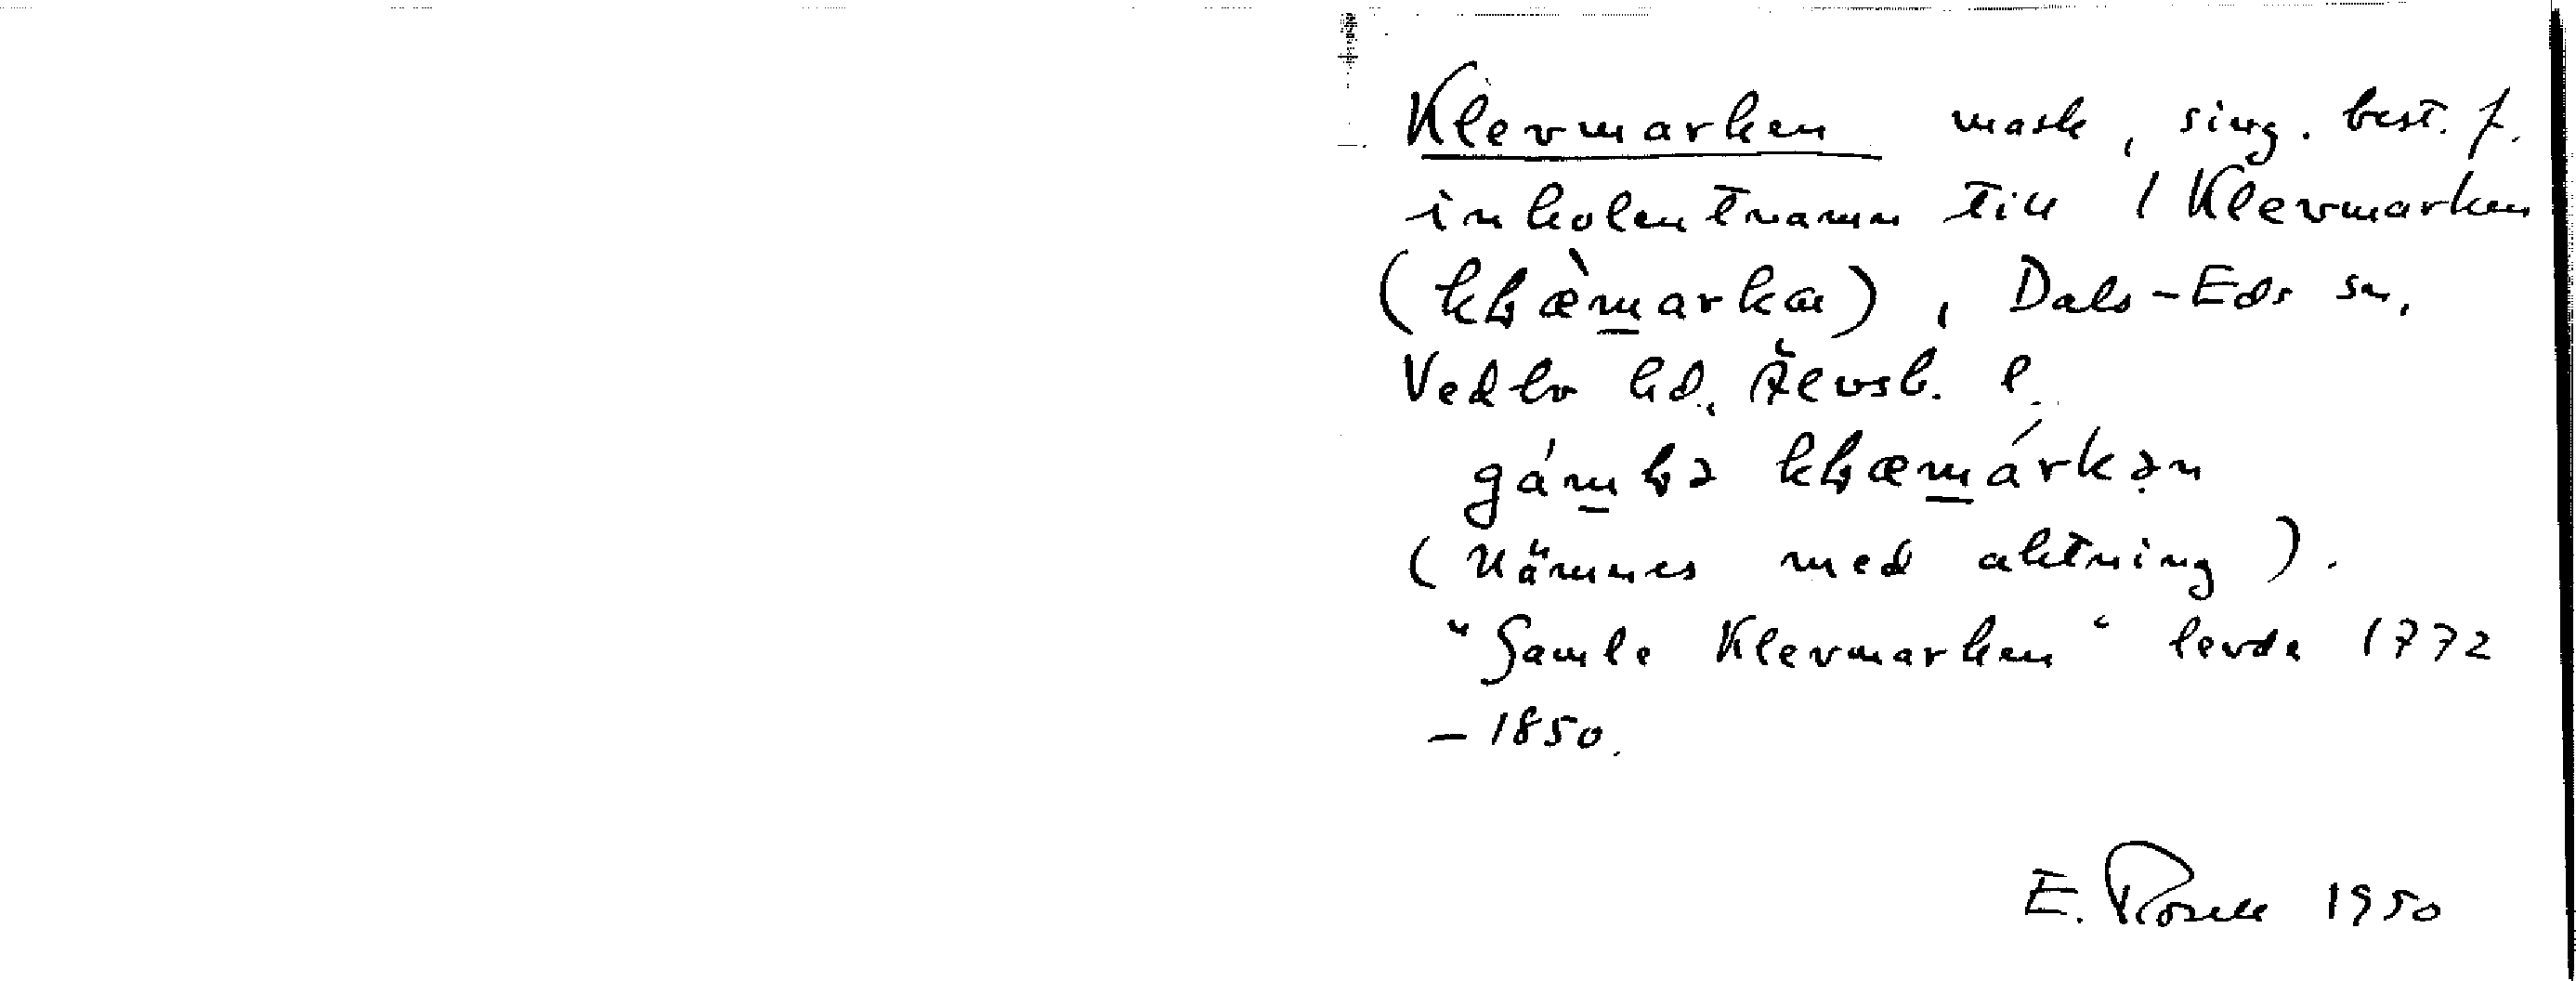 Klevmarken mask, sing. best. f.
inkolentnamn till 1 Klevmarken
(kɫæ̀marka), Dals-Eds sn,
Vedbo hd, Älvsb. l.
gámɫə kɫæmárkən
(Nämnes med aktning).
"Gamle Klevmarken" levde 1772
– 1850.
E. Rosell 1950